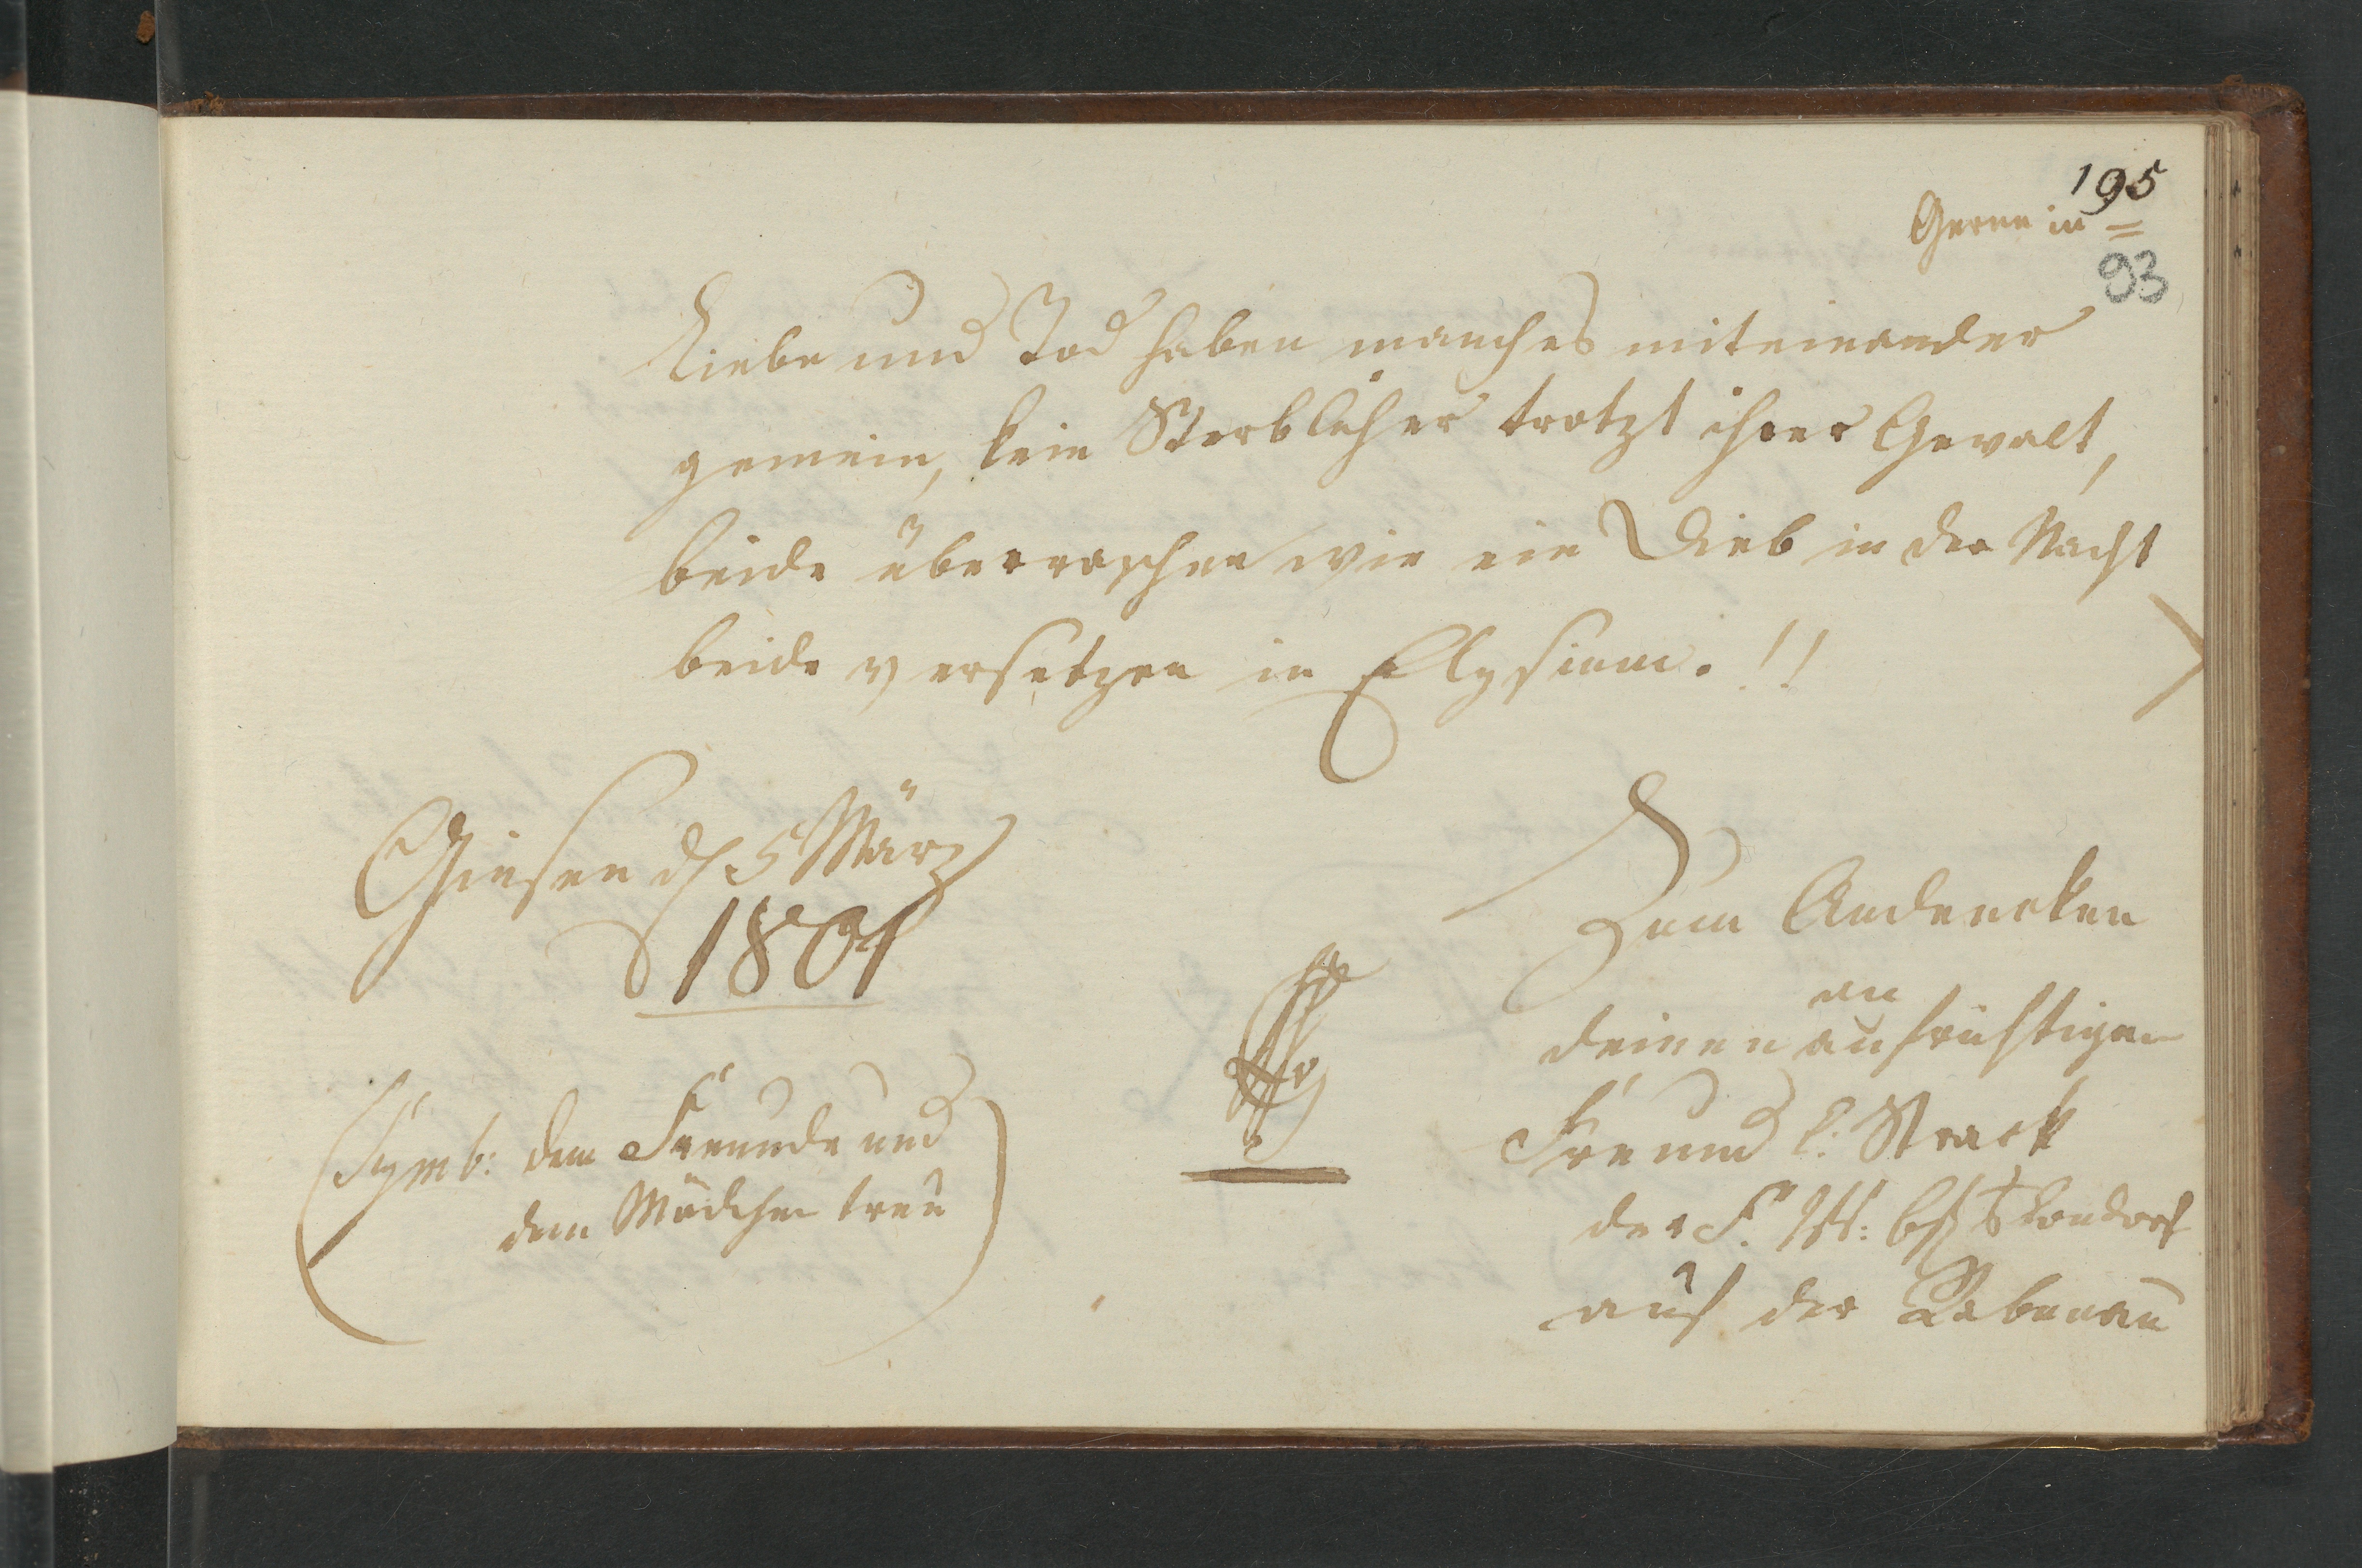 195
Gerne in =
93
Liebe und Tod haben manches miteinander
gemein, kein Sterblicher trotzt ihrer Gewalt,
beide überraschen wie ein Dieb in der Nacht
beide versetzen in Elysium. !!
Giesen d. 5 März
1801
Zum Andencken
an
deinen aufrichtigen
Freund C: Strack
der
aus der Rabenau
(Symb: dem Freunde und
dem Mädchen treu)